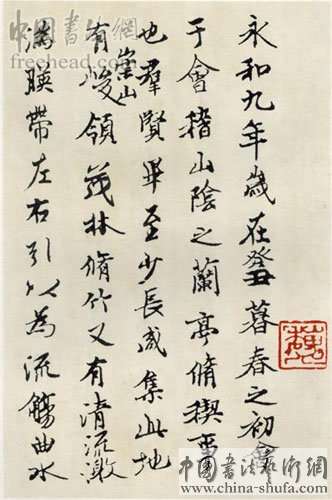 永和九年歲在癸丑暮春之初會
于會稽山陰之蘭亭脩禊事
也羣賢畢至少長咸集此地
有崇山峻領茂林脩竹又有清流激
湍暎帶左右引以為流觴曲水
中国書法網
freehead.com
中国書法藝術網
-www.china-shufa.com-